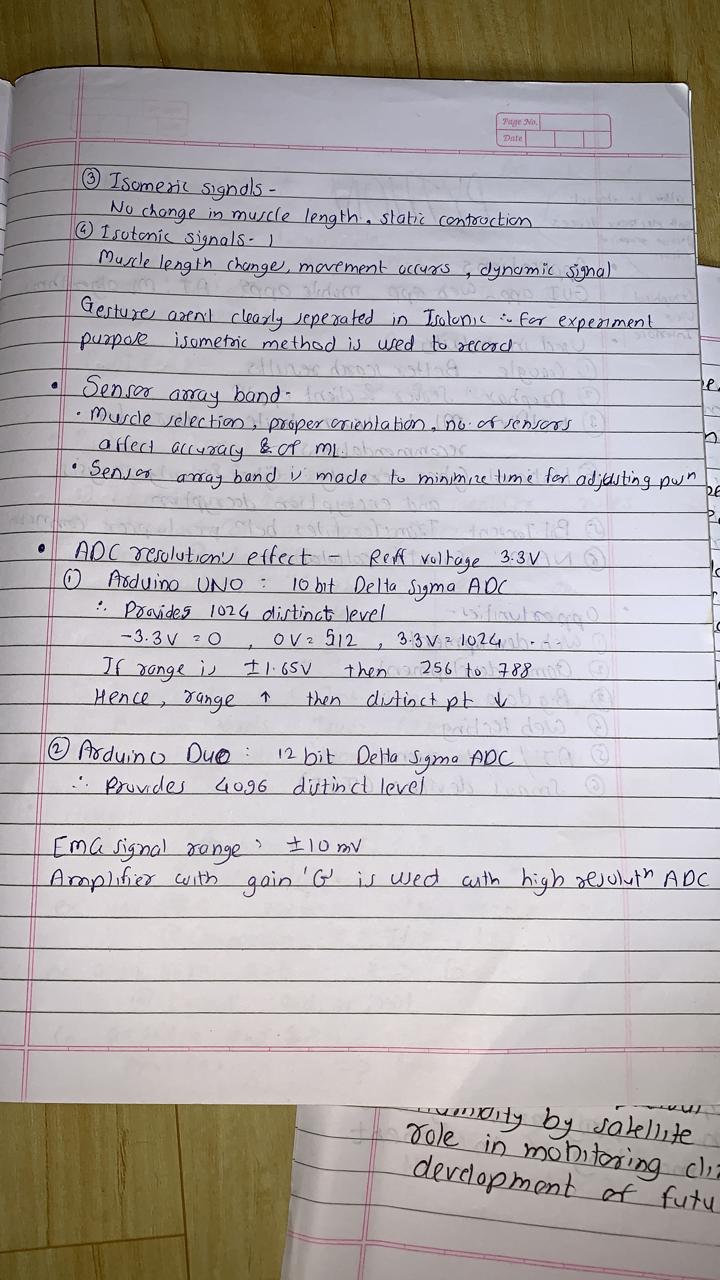 Page No.
Date
③ Isomeric signals -
No change in muscle length. static contraction
④ Isotonic signals - )
Muscle length change, movement occurs, dynamic signal
Gestures arent clearly seperated in Isolonic ∴ for experiment
purpose isometric method is used to record
• Sensor array band -
• Muscle selection, proper orientation, no. of sensors
affect accuracy & of ML
• Sensor array band is made to minimize time for adjusting
• ADC resolution's effect - Reff voltage 3.3V
① Arduino UNO : 10 bit Delta Sigma ADC
∴ Provides 1024 distinct level
-3.3V = 0 , 0V = 512 , 3.3V = 1024 ...
If range is ±1.65V then 256 to 788
Hence, range ↑ then distinct pt ↓
② Arduino Due : 12 bit Delta Sigma ADC
∴ Provides 4096 distinct level
EMG signal range : ±10 mV
Amplifier with gain 'G' is used with high resolutn ADC
by satellite
role in monitoring
development of futu